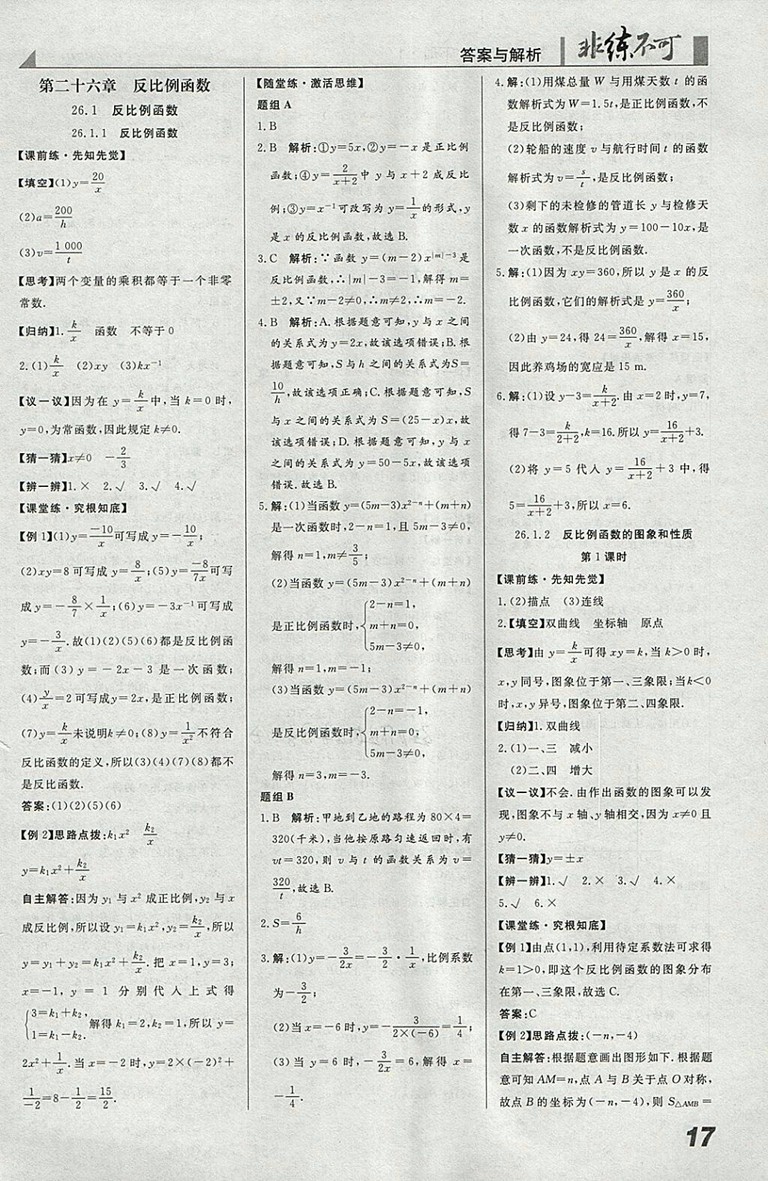 答案与解析
非练不可
第二十六章 反比例函数
26.1 反比例函数
26.1.1 反比例函数
【课前练·先知先觉】
【填空】(1)y=20/x
(2)a=200/h
(3)v=1 000/t
【思考】两个变量的乘积都等于一个非零
常数.
【归纳】1.k/x 函数 不等于0
2.(1)k/x (2)xy (3)kx⁻¹
【议一议】因为在y=k/x中,当k=0时,
y=0,为常函数,因此规定k≠0.
【猜一猜】x≠0 -2/3
【辨一辨】1.× 2.√ 3.√ 4.√
【课堂练·究根知底】
【例1】(1)y=-10/x可写成y=-10/x;
(2)xy=8可写成y=8/x;(5)y=-8/7x可写
成y=-8/7×1/x;(6)y=-3x⁻¹可写成
y=-3/x.故(1)(2)(5)(6)都是反比例函
数;而(3)y=-2x-3是一次函数;
(4)y/x=2可写成y=2x,是正比例函数;
(7)y=k/x未说明k≠0;(8)y=1/x²不符合
反比例函数的定义,所以(3)(4)(7)(8)都不
是反比例函数.
答案:(1)(2)(5)(6)
【例2】思路点拨:k₁x² k₂/x
y=k₁x²+k₂/x
自主解答:因为y₁与x²成正比例,y₂与x
成反比例,所以设y₁=k₁x²,y₂=k₂/x,所以
y=y₁+y₂=k₁x²+k₂/x.把x=1,y=3;
x=-1,y=1分别代入上式得
{3=k₁+k₂,
1=k₁-k₂. 解得k₁=2,k₂=1,所以y=
2x²+1/x.当x=-2时,y=2×(-2)²+
1/-2=8-1/2=15/2.
【随堂练·激活思维】
题组A
1.B
2.B 解析:①y=5x,②y=-x是正比例
函数;④y=2/x+2中y与x+2成反比
例;③y=x⁻¹可改写为y=1/x的形式,y
是x的反比例函数,故选B.
3.C 解析:∵函数y=(m-2)x^|m|-3是
反比例函数,∴|m|-3=-1,解得m=
±2,又∵m-2≠0,∴m≠2,∴m=-2.
4.B 解析:A.根据题意可知,y与x之间
的关系式为y=2x,故该选项错误;B.根
据题意可知,S与h之间的关系式为S=
10/h,故该选项正确;C.根据题意可知,S
与x之间的关系式为S=(25-x)x,故
该选项错误;D.根据题意可知,y与x
之间的关系式为y=50-5x,故该选项
错误.故选B.
5.解:(1)当函数y=(5m-3)x²⁻ⁿ+(m+n)
是一次函数时,2-n=1,且5m-3≠0,
解得n=1,m≠3/5;
(2)当函数y=(5m-3)x²⁻ⁿ+(m+n)
是正比例函数时,{2-n=1,
m+n=0,
5m-3≠0,
解得n=1,m=-1;
(3)当函数y=(5m-3)x²⁻ⁿ+(m+n)
是反比例函数时,{2-n=-1,
m+n=0;
5m-3≠0,
解得n=3,m=-3.
题组B
1.B 解析:甲地到乙地的路程为80×4=
320(千米),当他按原路匀速返回时,有
vt=320,则v与t的函数关系为v=
320/t,故选B.
2.S=6/h
3.解:(1)y=-3/2x=-3/2·1/x,比例系数
为-3/2;
(2)当x=-6时,y=-3/2×(-6)=1/4;
(3)当y=6时,-3/2x=6,解得x=
-1/4.
4.解:(1)用煤总量W与用煤天数t的函
数解析式为W=1.5t,是正比例函数,不
是反比例函数;
(2)轮船的速度v与航行时间t的函数
解析式为v=s/t,是反比例函数;
(3)剩下的未检修的管道长y与检修天
数x的函数解析式为y=100-10x,是
一次函数,不是反比例函数.
5.解:(1)因为xy=360,所以y是x的反
比例函数,它们的解析式是y=360/x;
(2)由y=24,得24=360/x,解得x=15,
因此养鸡场的宽应是15 m.
6.解:(1)设y-3=k/x+2.由x=2时,y=7,
得7-3=k/2+2,k=16.所以y=16/x+2+3.
(2)将y=5代入y=16/x+2+3中,得
5=16/x+2+3,所以x=6.
26.1.2 反比例函数的图象和性质
第1课时
【课前练·先知先觉】
1.(2)描点 (3)连线
2.【填空】双曲线 坐标轴 原点
【思考】由y=k/x可得xy=k,当k>0时,
x,y同号,图象位于第一、三象限;当k<0
时,x,y异号,图象位于第二、四象限.
【归纳】1.双曲线
2.(1)一、三 减小
(2)二、四 增大
【议一议】不会.由作出函数的图象可以发
现,图象不与x轴、y轴相交,因为x≠0且
y≠0.
【猜一猜】y=±x
【辨一辨】1.√ 2.× 3.√ 4.×
5.√ 6.×
【课堂练·究根知底】
【例1】由点(1,1),利用待定系数法可求得
k=1>0,即这个反比例函数的图象分布
在第一、三象限,故选C.
答案:C
【例2】思路点拨:(-n,-4)
自主解答:根据题意画出图形如下.根据题
意可知AM=n,点A与B关于点O对称,
故点B的坐标为(-n,-4),则S△AMB=
17